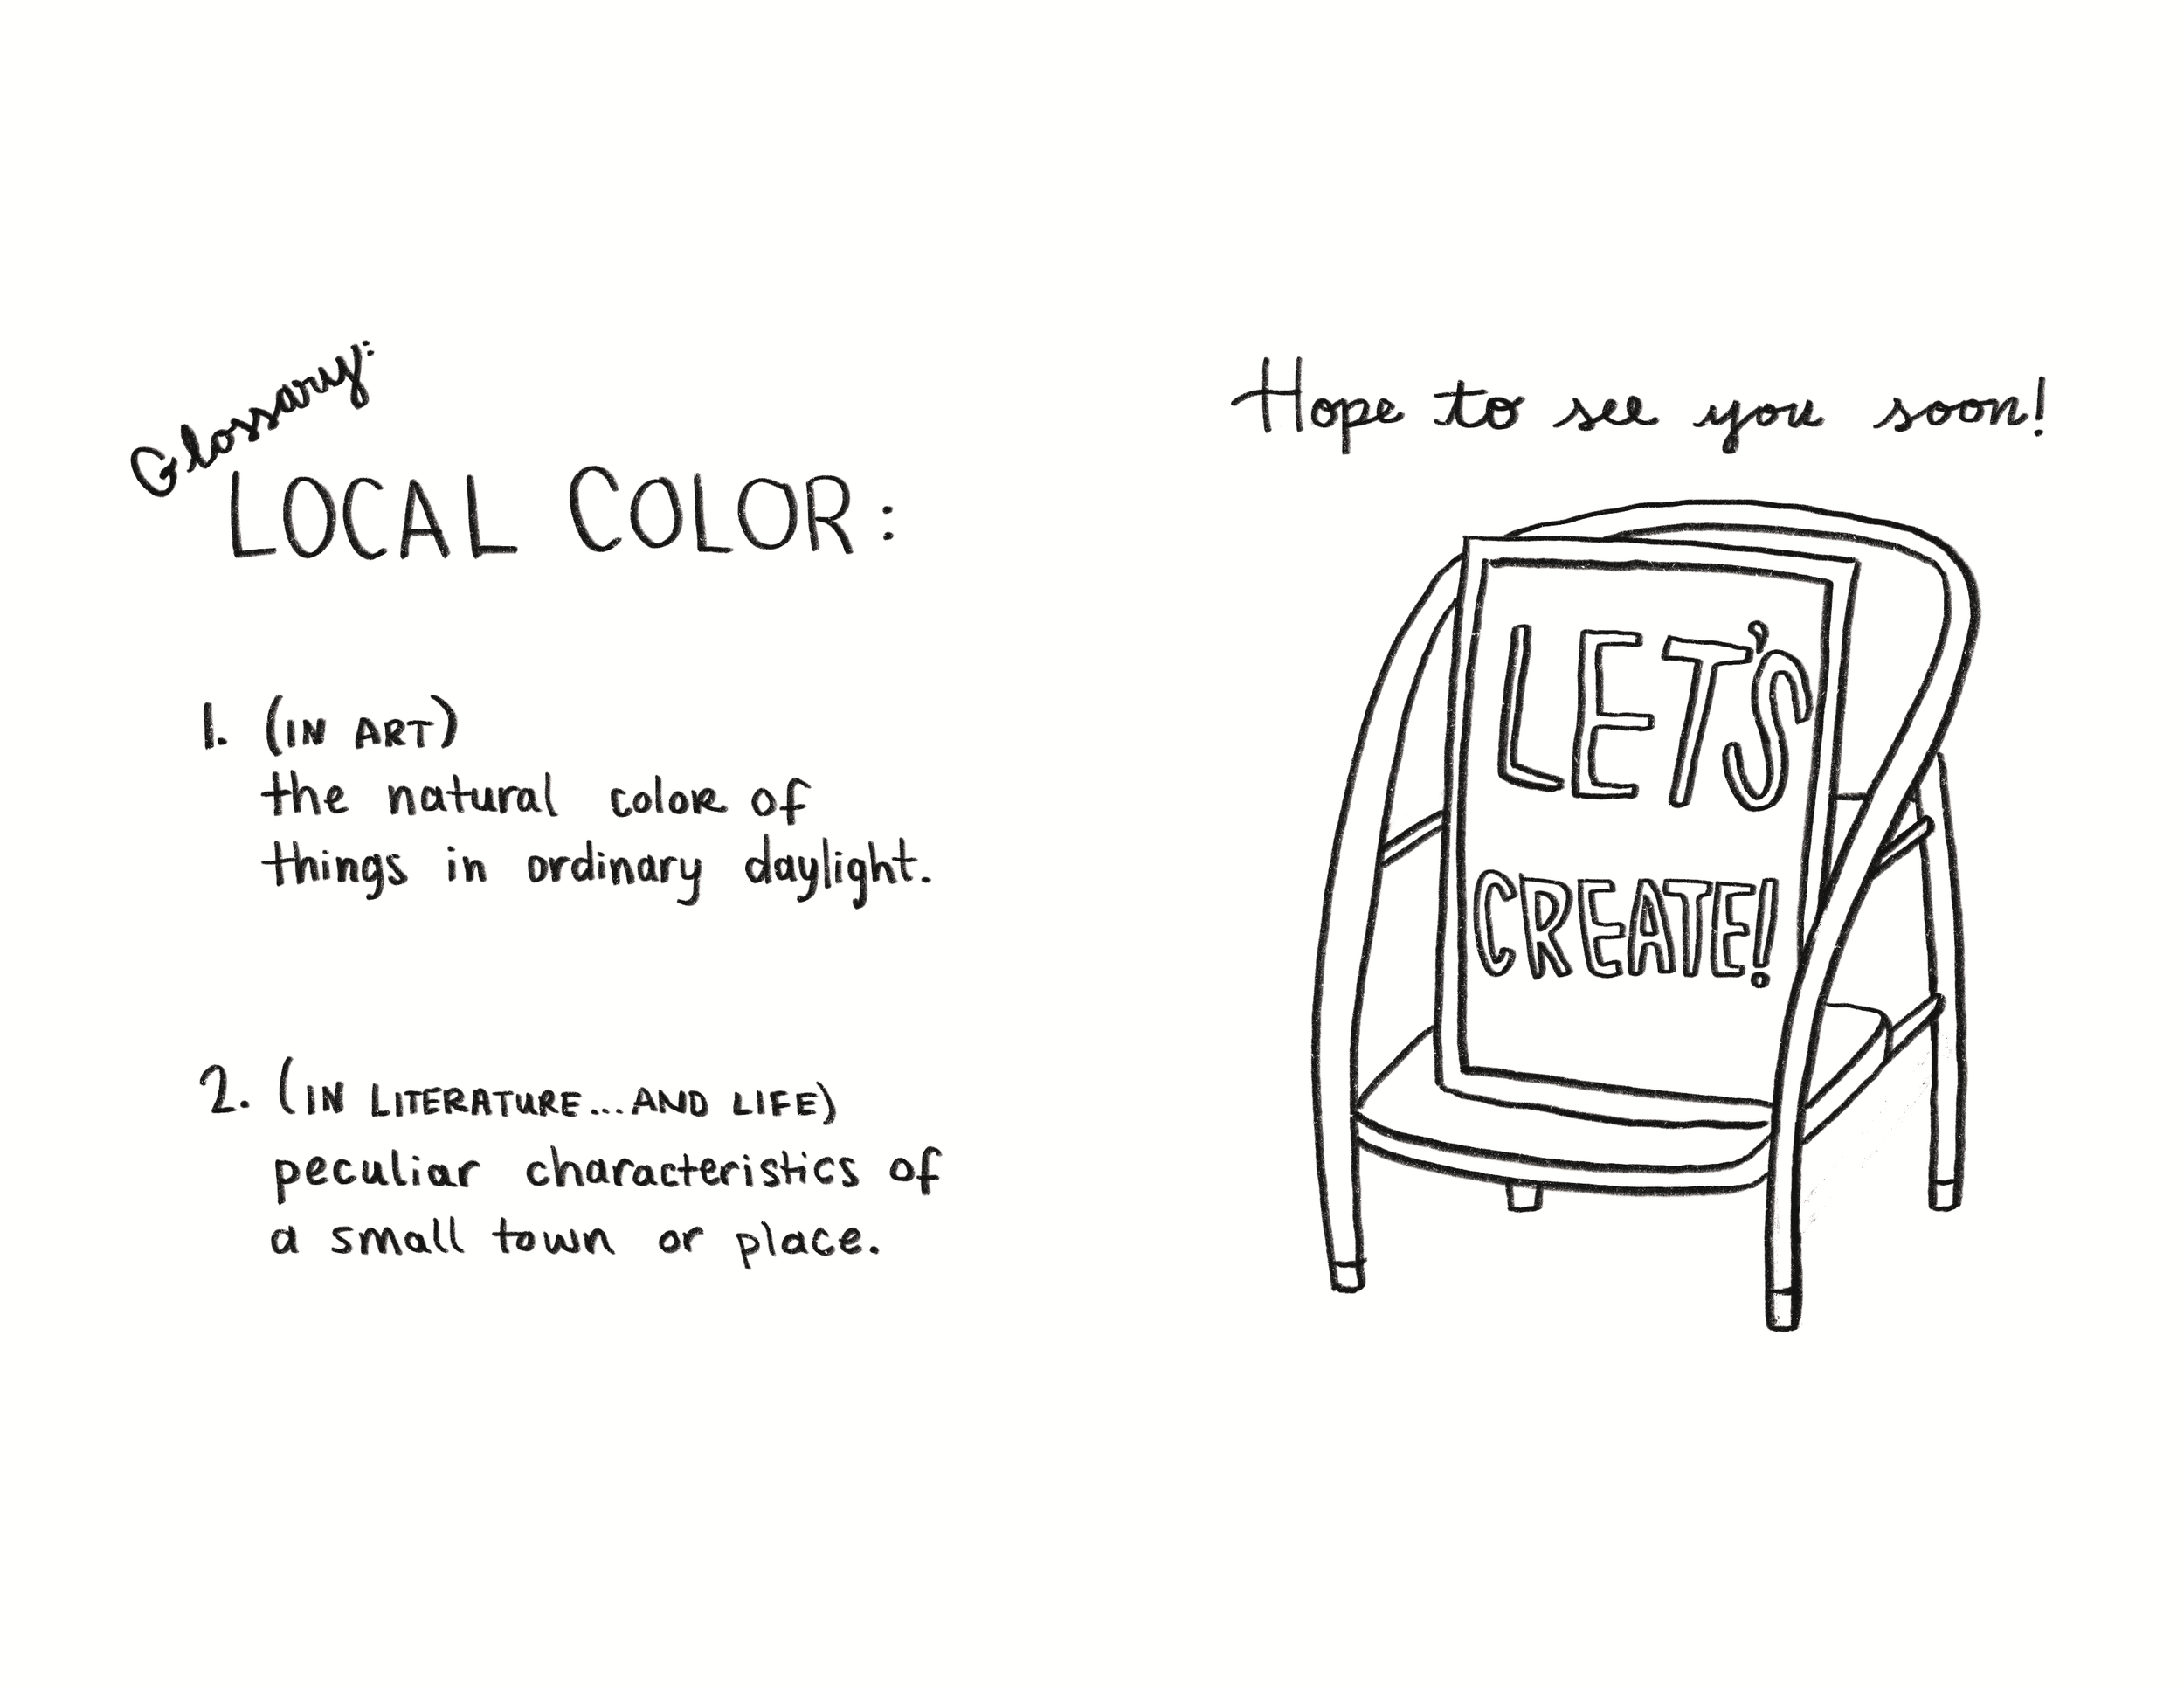 Glossary:
LOCAL COLOR:
1. (IN ART)
the natural color of
things in ordinary daylight.
2. (IN LITERATURE...AND LIFE)
peculiar characteristics of
a small town or place.
Hope to see you soon!
LET'S
CREATE!